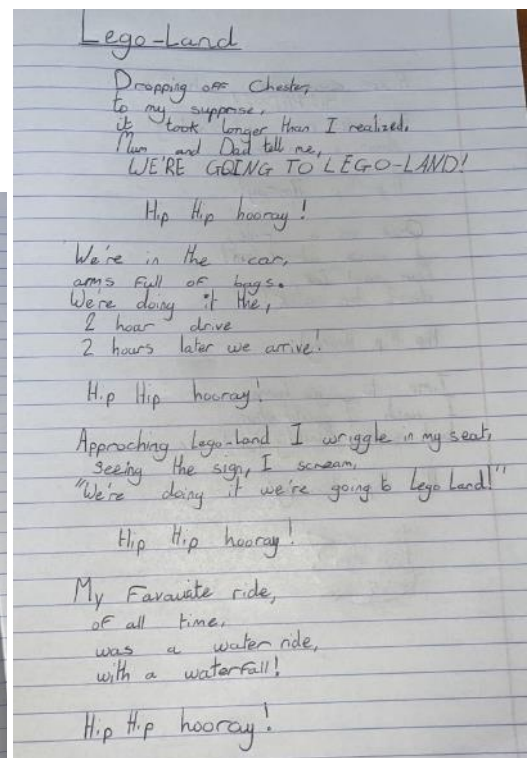 Lego-Land
Dropping off Chester,
to my supprise,
it took longer than I realized,
Mum and Dad tell me,
WE'RE GOING TO LEGO-LAND!
Hip Hip hooray!
We're in the car,
arms full of bags.
We're doing it the,
2 hour drive
2 hours later we arrive!
Hip Hip hooray!
Approching Lego-Land I wriggle in my seat,
seeing the sign, I scream,
"We're doing it we're going to Lego Land!"
Hip Hip hooray!
My Favauite ride,
of all time,
was a water ride,
with a waterfall!
Hip Hip hooray!